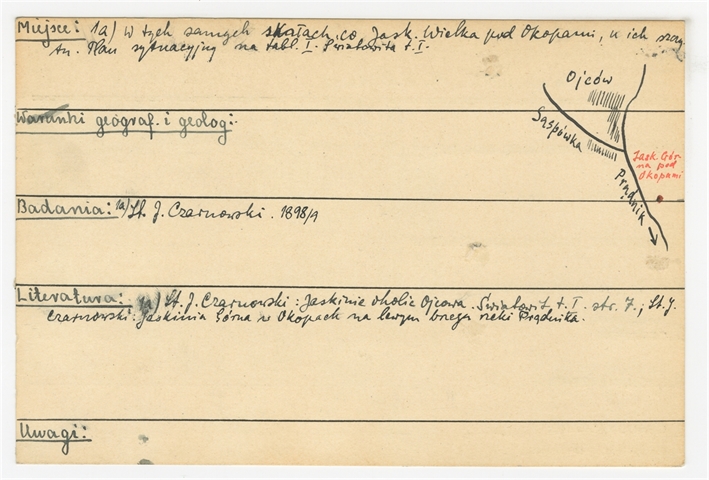 Miejsce: 1a) W tych samych skałach, co Jask. Wielka pod Okopami, u ich szczy
tu. Plan sytuacyjny na tabl. I. Światowita t. I.
Ojców
Sąspówka
Prądnik
Jask. Gór-
na pod
Okopami
Warunki geograf. i geolog:
Badania: 1a) St. J. Czarnowski. 1898/9
Literatura: 1a) St. J. Czarnowski: Jaskinie okolic Ojcowa. Światowit, t. I. str. 7.; St. J.
Czarnowski: Jaskinia Górna w Okopach na lewym brzegu rzeki Prądnika.
Uwagi: